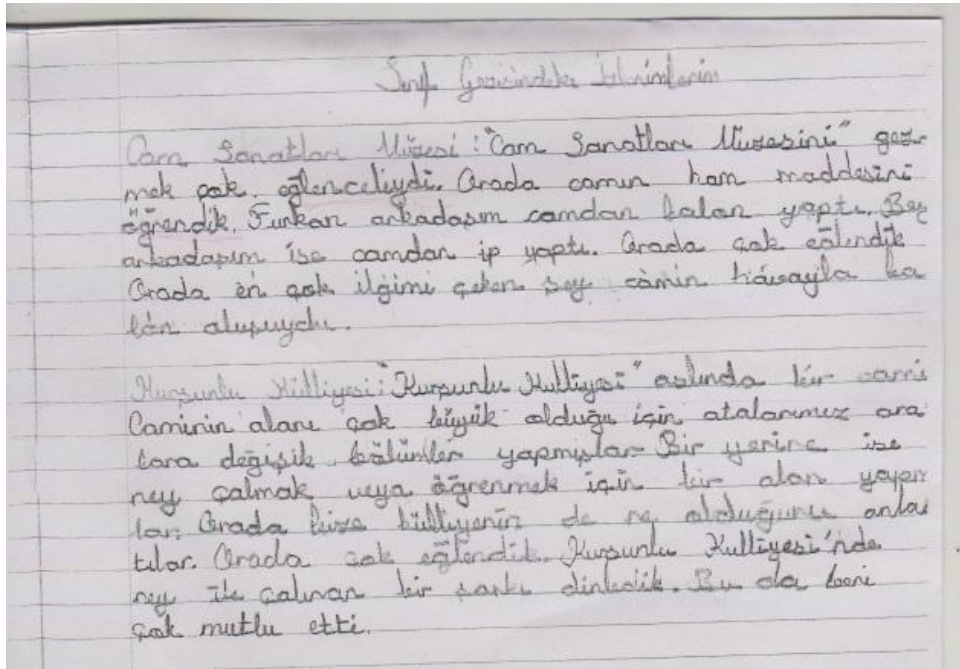 Sınıf Gezisindeki İzlenimlerim
Cam Sanatları Müzesi: "Cam Sanatları Müzesini" gez-
mek çok eğlenceliydi. Orada camın ham maddesini
öğrendik. Furkan arkadaşım camdan balon yaptı. Bay
arkadaşım ise camdan ip yaptı. Orada çok eğlendik
Orada en çok ilgimi çeken şey camın havayla ba
lon oluşuydu.
Kurşunlu Külliyesi: "Kurşunlu Kulliyesi" aslında bir cami
Caminin alanı çok büyük olduğu için atalarımız ora
lara değişik bölümler yapmışlar. Bir yerine ise
ney çalmak veya öğrenmek için bir alan yapan
lar. Orada bize külliyenin de ne olduğunu anla
tılar. Orada çok eğlendik. Kurşunlu Kulliyesi'nde
ney ile çalınan bir şarkı dinledik. Bu da beni
çok mutlu etti.